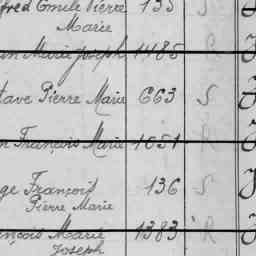 fred Emile Pierre 135 S
Marie
Marie Joseph 1485
tave Pierre Marie 663 S
n François Marie 1051 R
ge François 136 S
Pierre Marie
nçois Marie 1383 R
Joseph